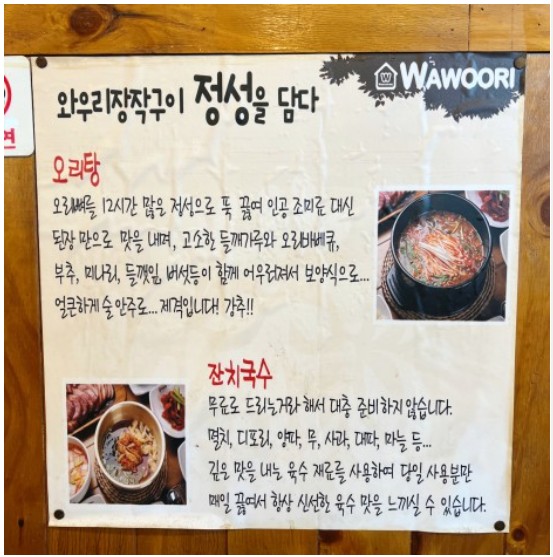 WAWOORI
와우리장작구이 정성을 담다
오리탕
오리뼈를 12시간 많은 정성으로 푹 끓여 인공 조미료 대신
된장 만으로 맛을 내며, 고소한 들깨가루와 오리바베큐,
부추, 미나리, 들깻잎, 버섯등이 함께 어우러져서 보양식으로...
얼큰하게 술 안주로... 제격입니다! 강추!!
잔치국수
무료로 드리는거라 해서 대충 준비하지 않습니다.
멸치, 디포리, 양파, 무, 사과, 대파, 마늘 등...
깊은 맛을 내는 육수 재료를 사용하여 당일 사용분만
매일 끓여서 항상 신선한 육수 맛을 느끼실 수 있습니다.
연